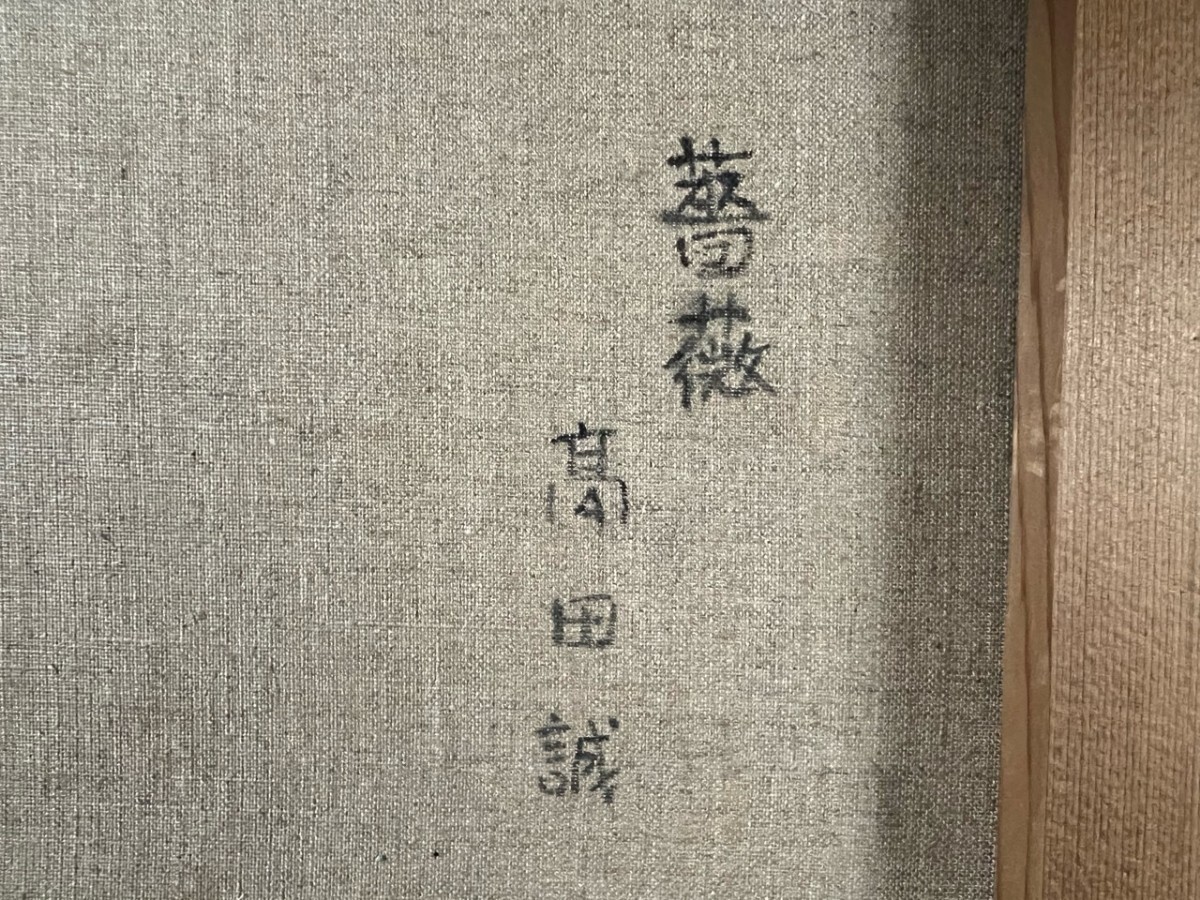 薔薇
髙田誠